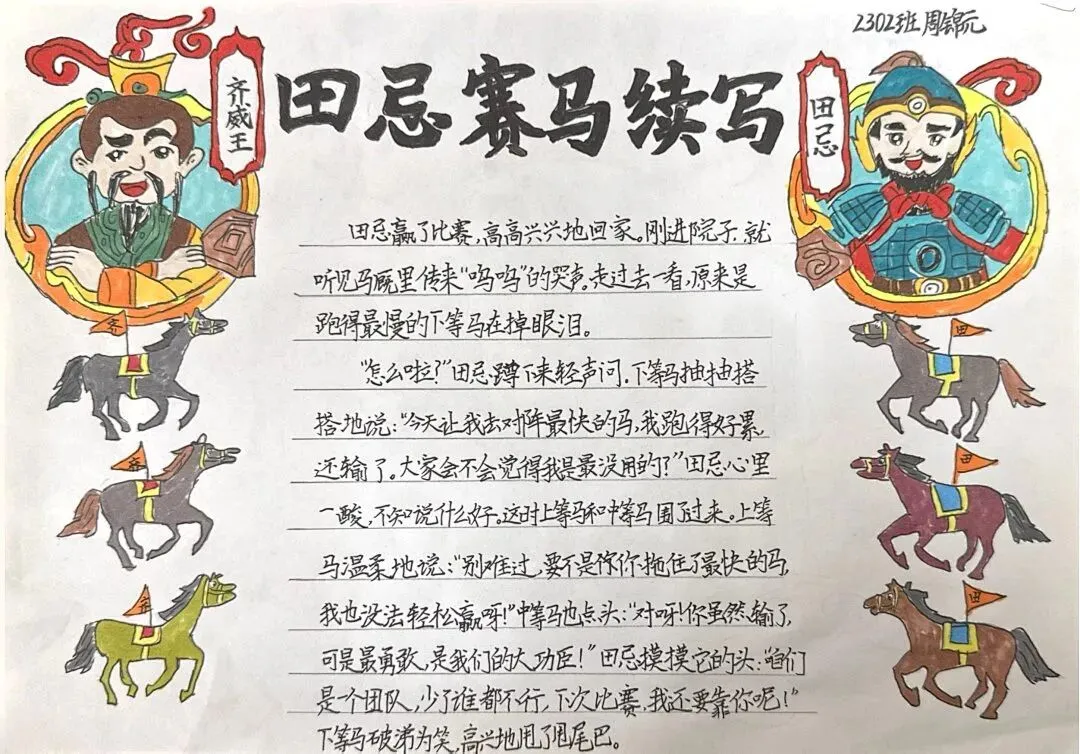 2302班 周锦元
田忌赛马续写
齐威王
田忌
田忌赢了比赛，高高兴兴地回家。刚进院子，就
听见马厩里传来“呜呜”的哭声。走过去一看，原来是
跑得最慢的下等马在掉眼泪。
“怎么啦？”田忌蹲下来轻声问。下等马抽抽搭
搭地说：“今天让我去对阵最快的马，我跑得好累，
还输了。大家会不会觉得我是最没用的？”田忌心里
一酸，不知说什么好。这时上等马和中等马围了过来。上等
马温柔地说：“别难过，要不是你拖住了最快的马，
我也没法轻松赢呀！”中等马也点头：“对呀！你虽然输了，
可是最勇敢，是我们的大功臣！”田忌摸摸它的头：“咱们
是个团队，少了谁都不行，下次比赛，我还要靠你呢！”
下等马破涕为笑，高兴地甩了甩尾巴。
齐
齐
齐
田
田
田